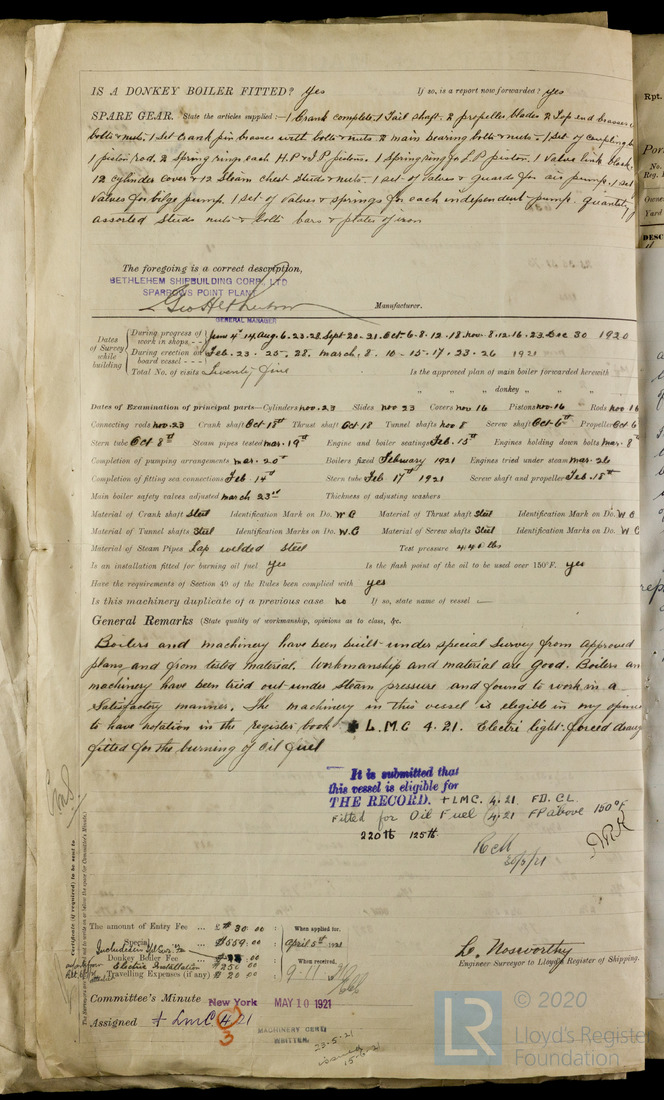 IS A DONKEY BOILER FITTED? Yes If so, is a report now forwarded? yes
SPARE GEAR. State the articles supplied:— 1 Crank complete. 1 Tail shaft. 2 propeller blades 2 Top end brasses
bolts & nuts. 1 set crank pin brasses with bolts & nuts. 2 main bearing bolts & nuts. 1 set of coupling
1 piston rod. 2 Spring rings each H.P. & I.P. pistons. 1 spring ring for L.P. piston. 1 valve link block.
12 cylinder cover & 12 Steam chest studs & nuts. 1 set of valves & guards for air pump. 1 set
valves for bilge pump. 1 set of valves & springs for each independent pump. quantity of
assorted studs nuts & bolts bars & plates of iron
The foregoing is a correct description,
BETHLEHEM SHIPBUILDING CORP., LTD
SPARROWS POINT PLANT
Manufacturer.
GENERAL MANAGER
Dates of Survey while building
During progress of work in shops - - June 4th 14. Aug. 6. 23. 28. Sept 20. 21. Oct. 6. 8. 12. 18. nov. 8. 12. 16. 23. Dec 30 1920
During erection on board vessel - - - Feb. 23. 25. 28. march. 8. 10. 15. 17. 23. 26 1921
Total No. of visits Twenty five Is the approved plan of main boiler forwarded herewith
" " " donkey " " "
Dates of Examination of principal parts—Cylinders nov. 23 Slides nov 23 Covers nov 16 Pistons nov. 16 Rods nov 16
Connecting rods nov. 23 Crank shaft Oct 18th Thrust shaft Oct 18 Tunnel shafts nov 8 Screw shaft Oct 6th Propeller Oct 6
Stern tube Oct 8th Steam pipes tested mar. 19th Engine and boiler seatings Feb. 15th Engines holding down bolts mar. 8th
Completion of pumping arrangements mar. 20th Boilers fixed February 1921 Engines tried under steam mar. 26
Completion of fitting sea connections Feb. 14th Stern tube Feb 17th 1921 Screw shaft and propeller Feb. 18th
Main boiler safety valves adjusted march 23rd Thickness of adjusting washers
Material of Crank shaft Steel Identification Mark on Do. W G Material of Thrust shaft Steel Identification Mark on Do. W G
Material of Tunnel shafts Steel Identification Marks on Do. W.G Material of Screw shafts Steel Identification Marks on Do. W G
Material of Steam Pipes Lap welded steel Test pressure 440 lbs
Is an installation fitted for burning oil fuel yes Is the flash point of the oil to be used over 150°F. yes
Have the requirements of Section 49 of the Rules been complied with yes
Is this machinery duplicate of a previous case no If so, state name of vessel —
General Remarks (State quality of workmanship, opinions as to class, &c.
Boilers and machinery have been built under special survey from approved
plans and from tested material. Workmanship and material are good. Boilers an
machinery have been tried out under steam pressure and found to work in a
Satisfactory manner. The machinery in this vessel is eligible in my opinion
to have notation in the register book L.M.C 4.21. Electric light. forced draug
fitted for the burning of Oil fuel
It is submitted that
this vessel is eligible for
THE RECORD. + LMC. 4. 21 FD. CL.
Fitted for Oil Fuel 4.21 FP above 150°F
220 lb 125 lb.
Certificate (if required) to be sent to
The amount of Entry Fee ... £ $ 30 00 : When applied for.
Special ... $ 559. 00 : April 5th 1921
Donkey Boiler Fee ... When received,
Electric Installation $ 250 00
Travelling Expenses (if any) $ 20 00 9-11
L. Nosworthy
Engineer Surveyor to Lloyd's Register of Shipping.
Committee's Minute New York MAY 10 1921
Assigned + LMC 4 21
3
MACHINERY CERT.
WRITTEN. 23-5-21
15-6-21
Rpt.
Por
No.
Reg.
Owne
Yard
DESC
© 2020
LR Lloyd's Register
Foundation